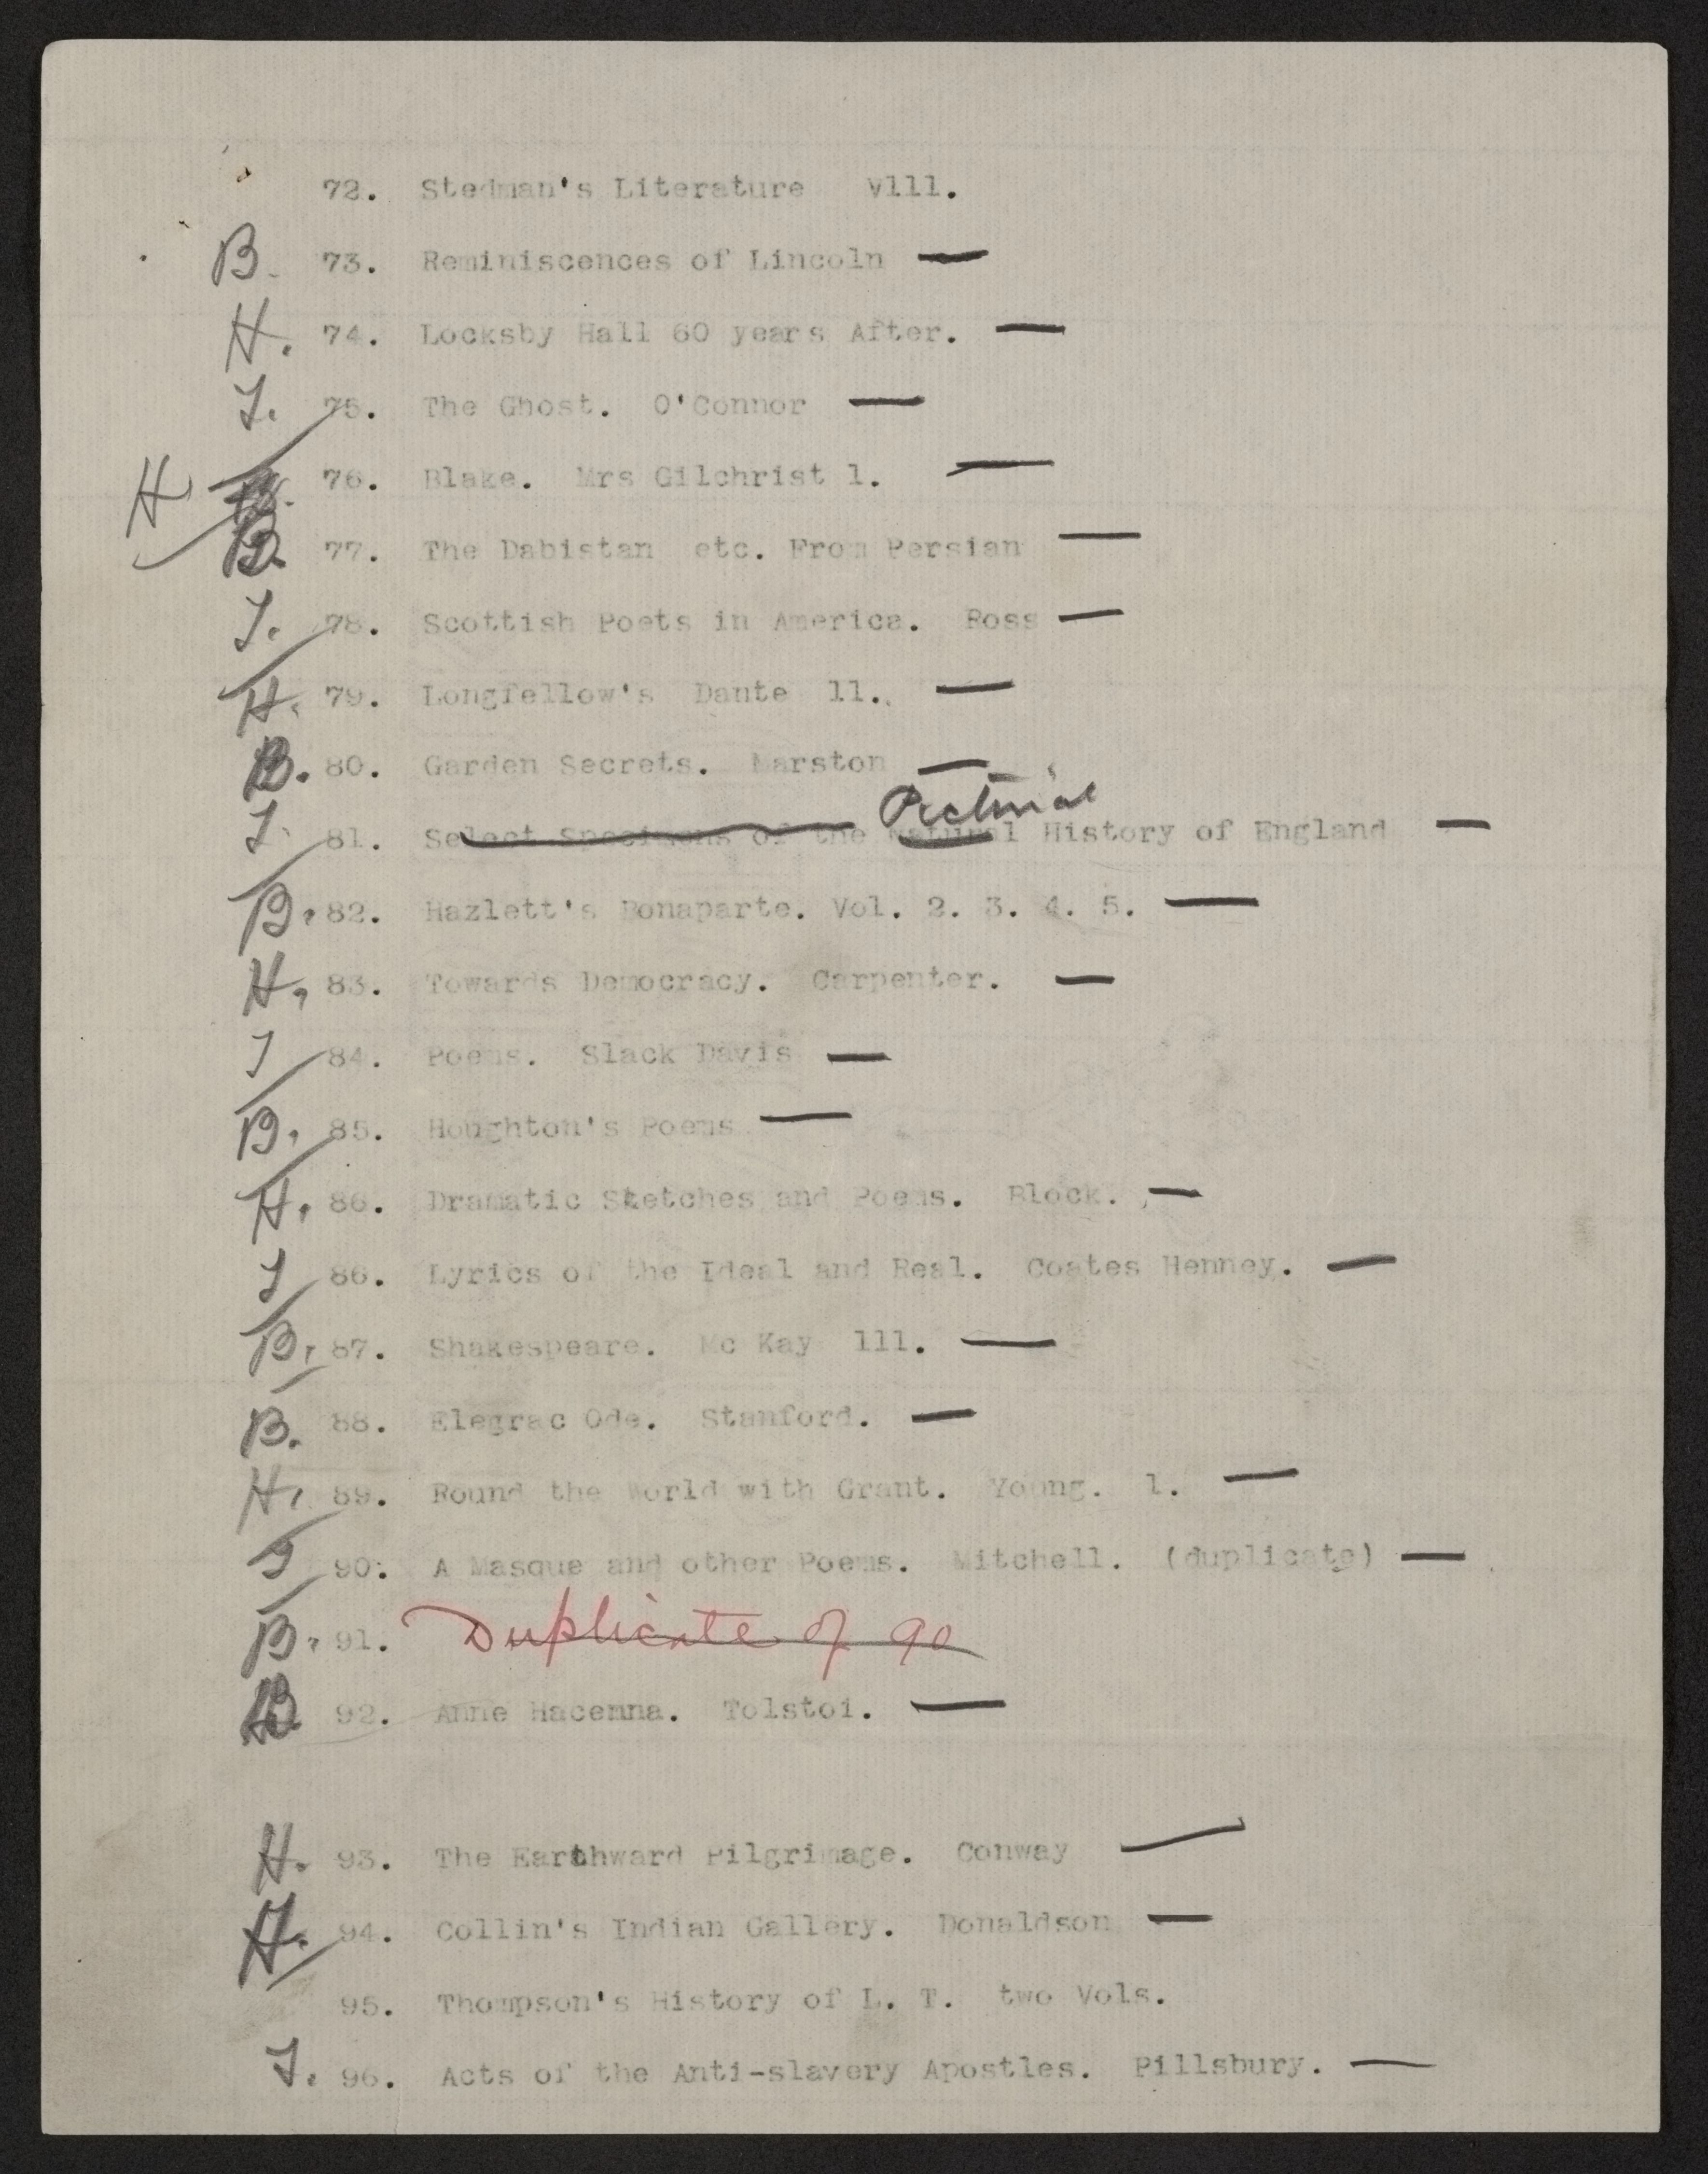 72. Stedman's Literature Vlll.
B. 73. Reminiscences of Lincoln —
H. 74. Locksby Hall 60 years After. —
T. 75. The Ghost. O'Connor —
H 76. Blake. Mrs Gilchrist l. —
B. 77. The Dabistan etc. From Persian —
T. 78. Scottish Poets in America. Ross —
H. 79. Longfellow's Dante ll. —
B. 80. Garden Secrets. Marston —
Pictorial
T. 81. Select Specimens of the Natural History of England —
B. 82. Hazlett's Bonaparte. Vol. 2. 3. 4. 5. —
H. 83. Towards Democracy. Carpenter. —
T 84. Poems. Slack Davis —
B. 85. Houghton's Poems —
H. 86. Dramatic Sketches and Poems. Block. —
T 86. Lyrics of the Ideal and Real. Coates Henney. —
B. 87. Shakespeare. Mc Kay lll. —
B. 88. Elegrac Ode. Stanford. —
H. 89. Round the World with Grant. Yoong. l. —
T 90. A Masque and other Poems. Mitchell. (duplicate) —
B. 91. Duplicate of 90
B 92. Anne Hacenna. Tolstoi. —
H. 93. The Earthward Pilgrimage. Conway —
94. Collin's Indian Gallery. Donaldson —
95. Thompson's History of L. T. two Vols.
T. 96. Acts of the Anti-slavery Apostles. Pillsbury. —